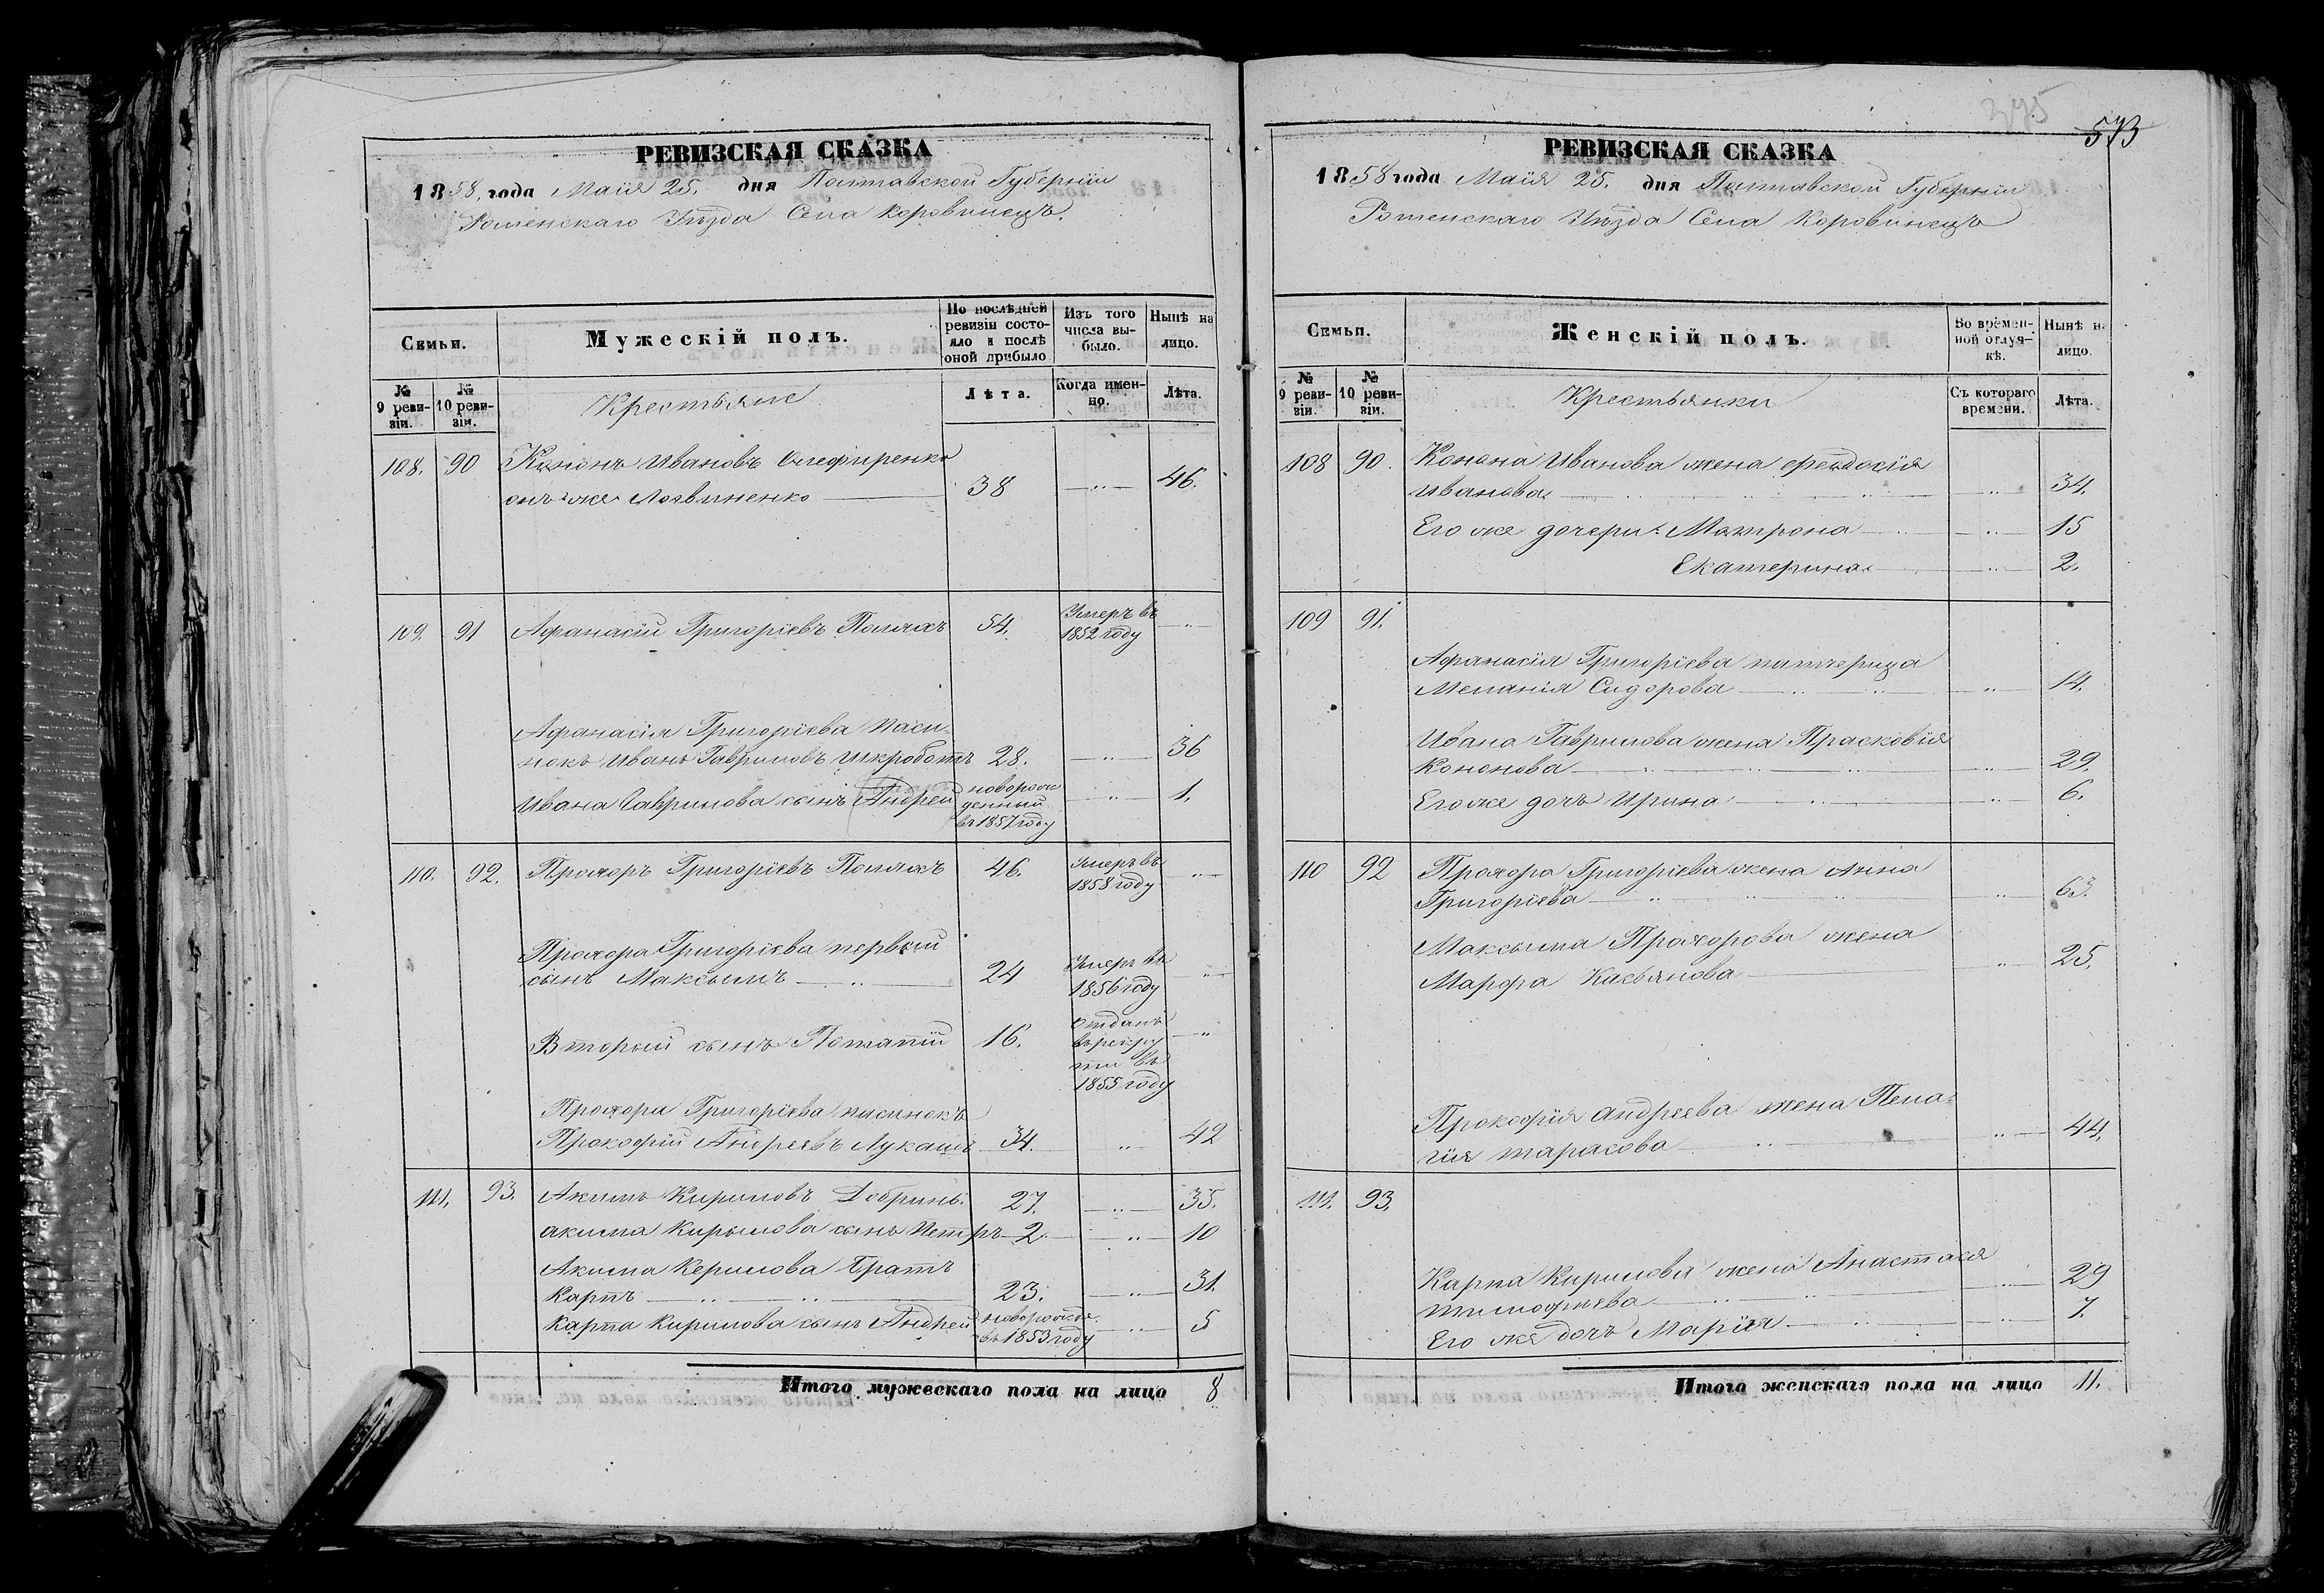 РЕВИЗСКАЯ СКАЗКА
1858 года Маія 25. дня Полтавской Губерніи
Роменскаго Уѣзда Села Коровинецъ.
Семьи.
Мужескій полъ.
По послѣдней ревизіи состояло и послѣ оной прибыло
Изъ того числа выбыло.
Нынѣ на лицо.
№ 9 ревизіи.
№ 10 ревизіи.
Крестьяне
Лѣта.
Когда именно.
Лѣта.
108. 90 Кононъ Ивановъ Олефиренко
онъ же Логвиненко 38 46.
109. 91 Афанасій Григоріевъ Полчах 54. Умеръ въ
1852 году
Афанасія Григоріева паси-
нокъ Иванъ Гавриловъ Шкроботъ 28. 36
Ивана Гаврилова сынъ Андрей новорож
денный
въ 1857 году 1.
110. 92. Прохоръ Григоріевъ Полчах 46. Умеръ въ
1858 году
Прохора Григоріева первый
сынъ Максымъ 24 Умеръ въ
1856 году
Вторый сынъ Потапій 16. Отданъ
въ рекру
ты въ
1855 году
Прохора Григоріева пасинокъ
Прокофій Андреевъ Лукашъ 34. 42
111. 93. Акимъ Кириловъ 27. 35.
Акима Кирылова сынъ Петръ 2. 10
Акима Керилова Братъ
Карпъ 23. 31.
Карпа Кирилова сынъ Андрей новорожде.
въ 1853 году 5
Итого мужескаго пола на лицо 8
375
573
РЕВИЗСКАЯ СКАЗКА
1858 года Маія 25. дня Полтавской Губерніи
Роменскаго Уѣзда Села Коровинецъ
Семьи.
Женскій полъ.
Во временной отлучкѣ.
Нынѣ на лицо.
№ 9 ревизіи.
№ 10 ревизіи.
Крестьянки
Съ котораго времени.
Лѣта.
108 90. Конона Иванова жена Феодосія
Иванова 34.
Его же дочери: Матрона 15
Екатерина 2.
109 91.
Афанасія Григоріева патчерица
Меланія Сидорова 14.
Ивана Гаврилова жена Прасковія
Кононова 29.
Его же дочь Ирина 6.
110 92 Прохора Григоріева жена Анна
Григоріева 63.
Максыма Прохорова жена
Марфа Касьянова 25.
Прокофія Андреева жена Пела-
гія Тарасова 44.
111. 93.
Карпа Кирилова жена Анастасія
Тимофѣева 29
Его же дочь Марія 7.
Итого женскаго пола на лицо 11.